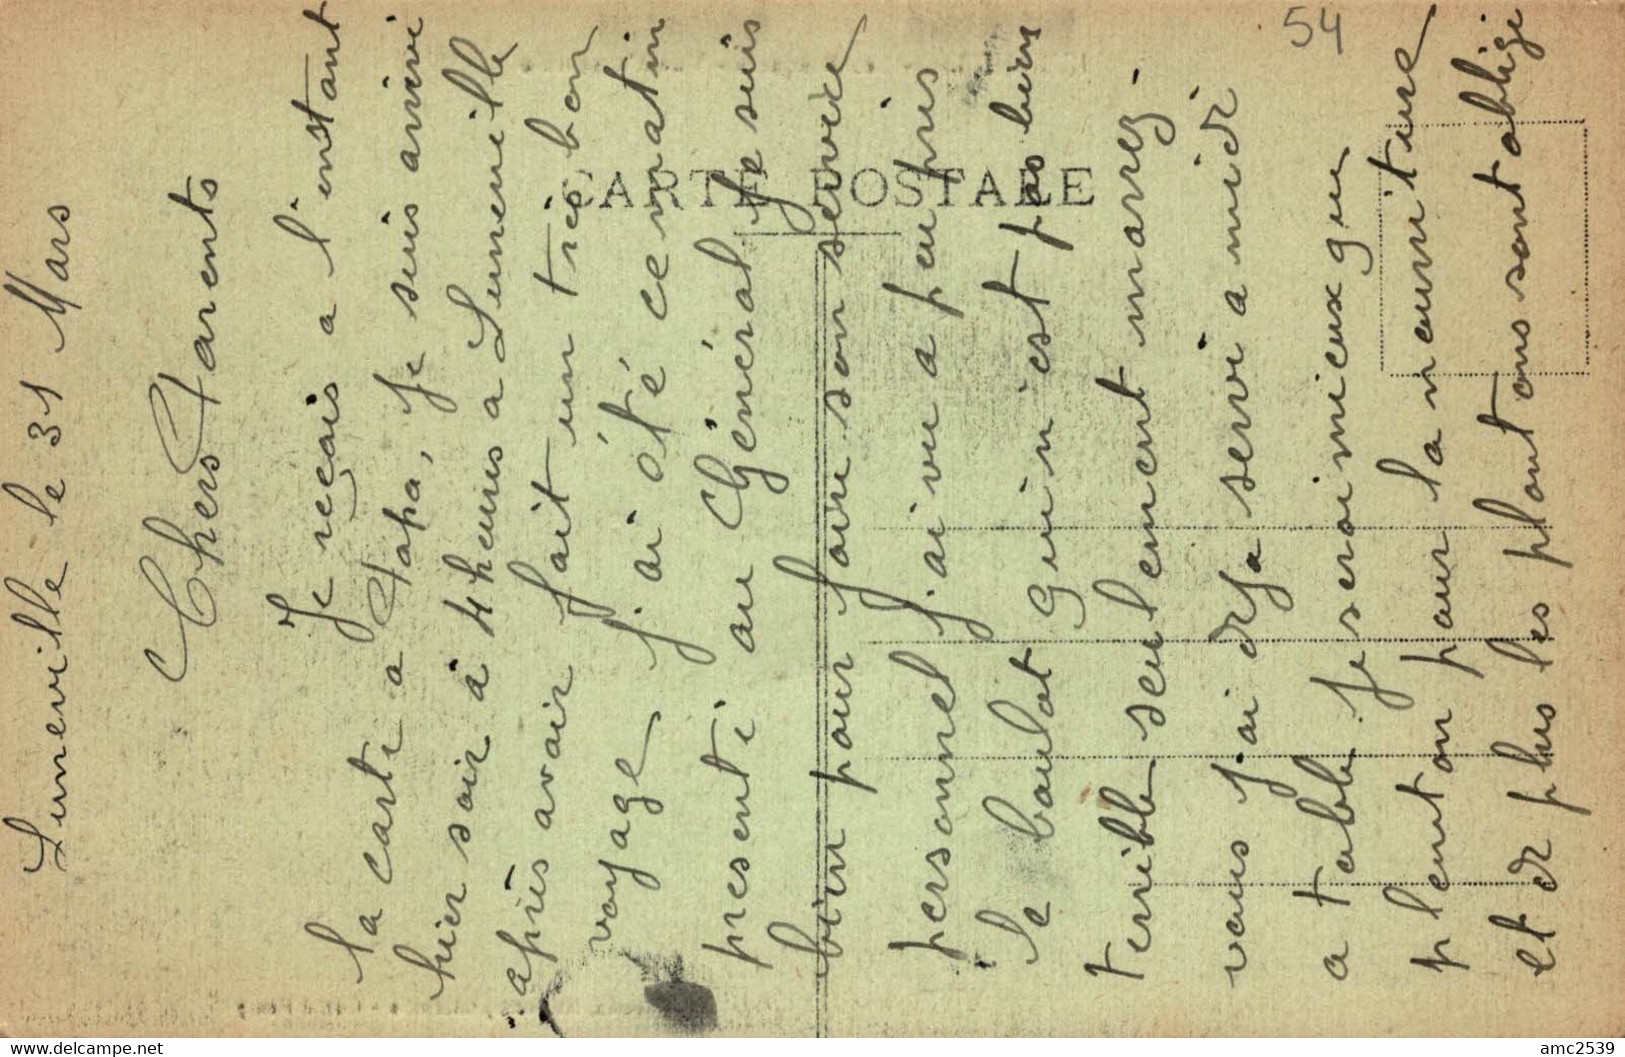 Luneville le 31 Mars
Chers Parents
Je reçois a l'instant
la carte a Papa, Je suis arrivi
hier soir à 4 heures a Luneville
apris avoir fait un trés bon
voyage J'ai été ce matin
presenté au Général Je suis
bien pour faire son service
personnel J'ai vu a peu pris
le boulot qui n'est pas bien
terrible seulement
vous J'ai deja servi a midi
a table Je serai mieux qu
pleuton pour la nourriture
et de plus les plantons sont oblige
CARTE POSTALE
54
www.delcampe.net
amc2539